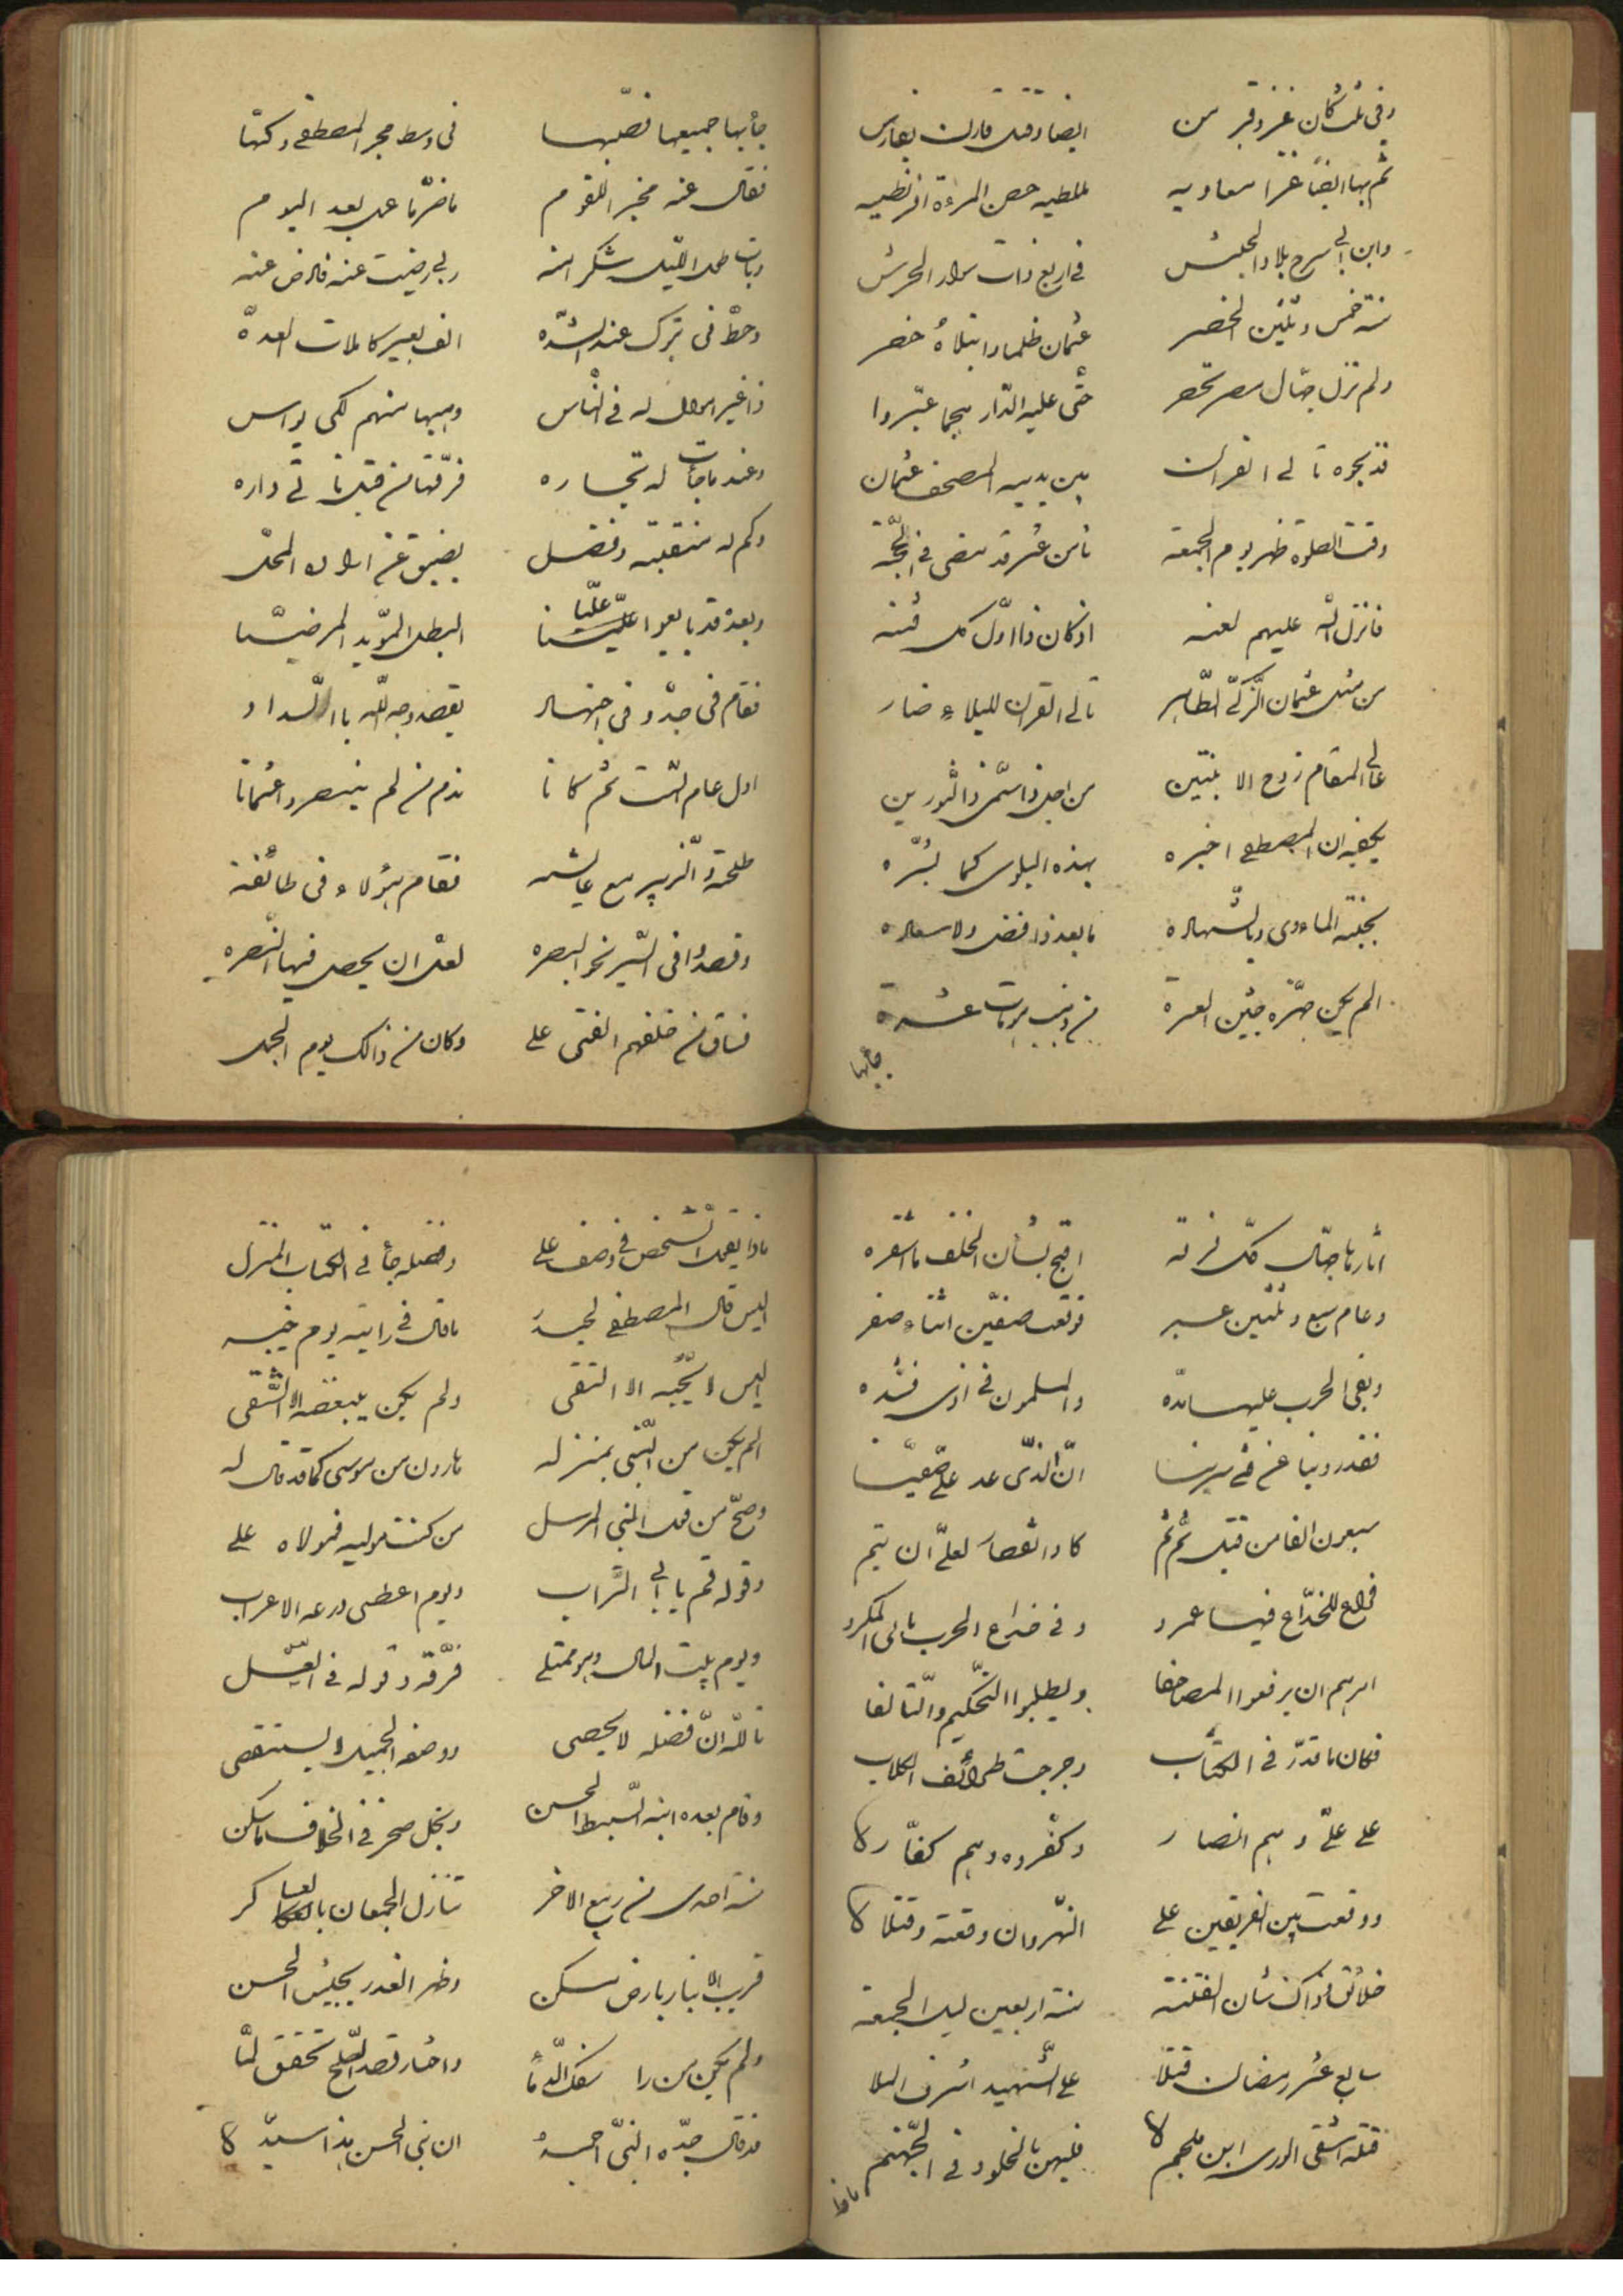 وفي ثلث كان غزو قبرس ايضا وقتل قارن بفارس
ثم بها ايضا غزا معاويه لملطيه حصن المرءة
وابن ابي سرح بلاد الحبش في اربع ذات سوار الحرش
سنة خمس وثلثين انحصر عثمان ظلما وابتلاه حصر
ولم تزل جهال مصر تحصر حتى عليه الدار هجما عبروا
فذبحوه تالي القران بين يديه المصحف عثمان
وقت الصلوة ظهر يوم الجمعه ثامن عشر قد مضى في الحجة
فانزل الله عليهم لعنه اذ كان ذا اول كل فتنه
من مثل عثمان الزكي الطاهر تالي القران للبلاء صابر
عالي المقام زوج الابنتين من اجل ذا سمي ذا النورين
يكفيه ان المصطفى اخبره بهذه البلوى كما بشره
بجنة الماوى وبالشهادة ما بعد ذا فضل ولا سعاده
الم يكن جهز جيش العسرة
جأبها
جأبها جميعها فصبها في وسط حجر المصطفى وكبها
فقال عنه مخبر للقوم ما ضر ما عمل بعد اليوم
وبات طول الليل يشكر انه ربي رضيت عنه فارض عنه
وحط في تبرك عند الشده الف بعير كاملات العده
ذا غير اموال له في الناس وهبها منهم لكي يواسي
وعند ما جأت له تجاره فرقها من قبل تأتي داره
وكم له منقبة وفضل يضيق عن ايراده المحل
وبعد قد بايعوا عليا البطل المؤيد المرضيا
فقام في جد وفي اجتهاد يقصد وجه الله بالسداد
اول عام الست ثم كانا ندم من لم ينصروا عثمانا
طلحة والزبير مع عايشه فقام هؤلاء في طائفة
وقصدوا في السير نحو البصره لعل ان يحصل فيها النصره
فساق من خلفهم الفتى علي وكان من ذالك يوم الجمل
اثارها جهال كل نزقه اقبح بشأن الخلف ما اشقره
وعام سبع وثلثين عبر فوقعت صفين اثناء صفر
وبقي الحرب عليها مده والمسلمون في اذى وشده
فقد روينا عن في سيرنا ان الذي عد على صفينا
سبعون الفا من قتيل ثم ثم كادوا لعل ان يتم
للخداع فيها عمرو وفي خداع الحرب تالي المكر
امرهم ان يرفعوا المصاحفا ويطلبوا التحكيم والتآلفا
فكان ما قدر في الكتاب وخرجت طوائف الكلاب
على علي وهم انصار وكفروه وهم كفار
ووقعت بين الفريقين على النهروان وقعة وقتلا
خلائق وذاك شأن الفتنة سنة اربعين ليلة الجمعة
سابع عشر رمضان قتلا علي الشهيد اشرف الملا
قتله اشقى الورى ابن ملجم فليهن بالخلود في الجهنم
ماذا
ماذا يقول الشخص في وصف علي وفضله جأ في الكتاب المنزل
اليس قال المصطفى لحيدر ما قال في رايته يوم خيبر
اليس لا يحبه الا التقي ولم يكن يبغضه الا الشقي
الم يكن من النبي بمنزله هارون من موسى كما قد قال له
وصح من قول النبي المرسل من كنت موليه فمولاه علي
وقوله قم يا ابي التراب ويوم اعطى درعه الاعراب
ويوم بيت المال وهو ممتلي فرقه وقوله في الليل
تالله ان فضله لا يحصى ووصفه الجميل لا يستقصى
وقام بعده ابنه السبط الحسن ونجل صخر في الخلاف ما سكن
سنة احدى من ربيع الاخر تنازل الجمعان بالعساكر
قريب الانبار بارض مسكن وظهر الغدر بجيش الحسن
ولم يكن من را سفك الدماء واختار قصد الصلح تحقق لما
قد قال جده النبي احمد ان بني الحسن هذا سيد